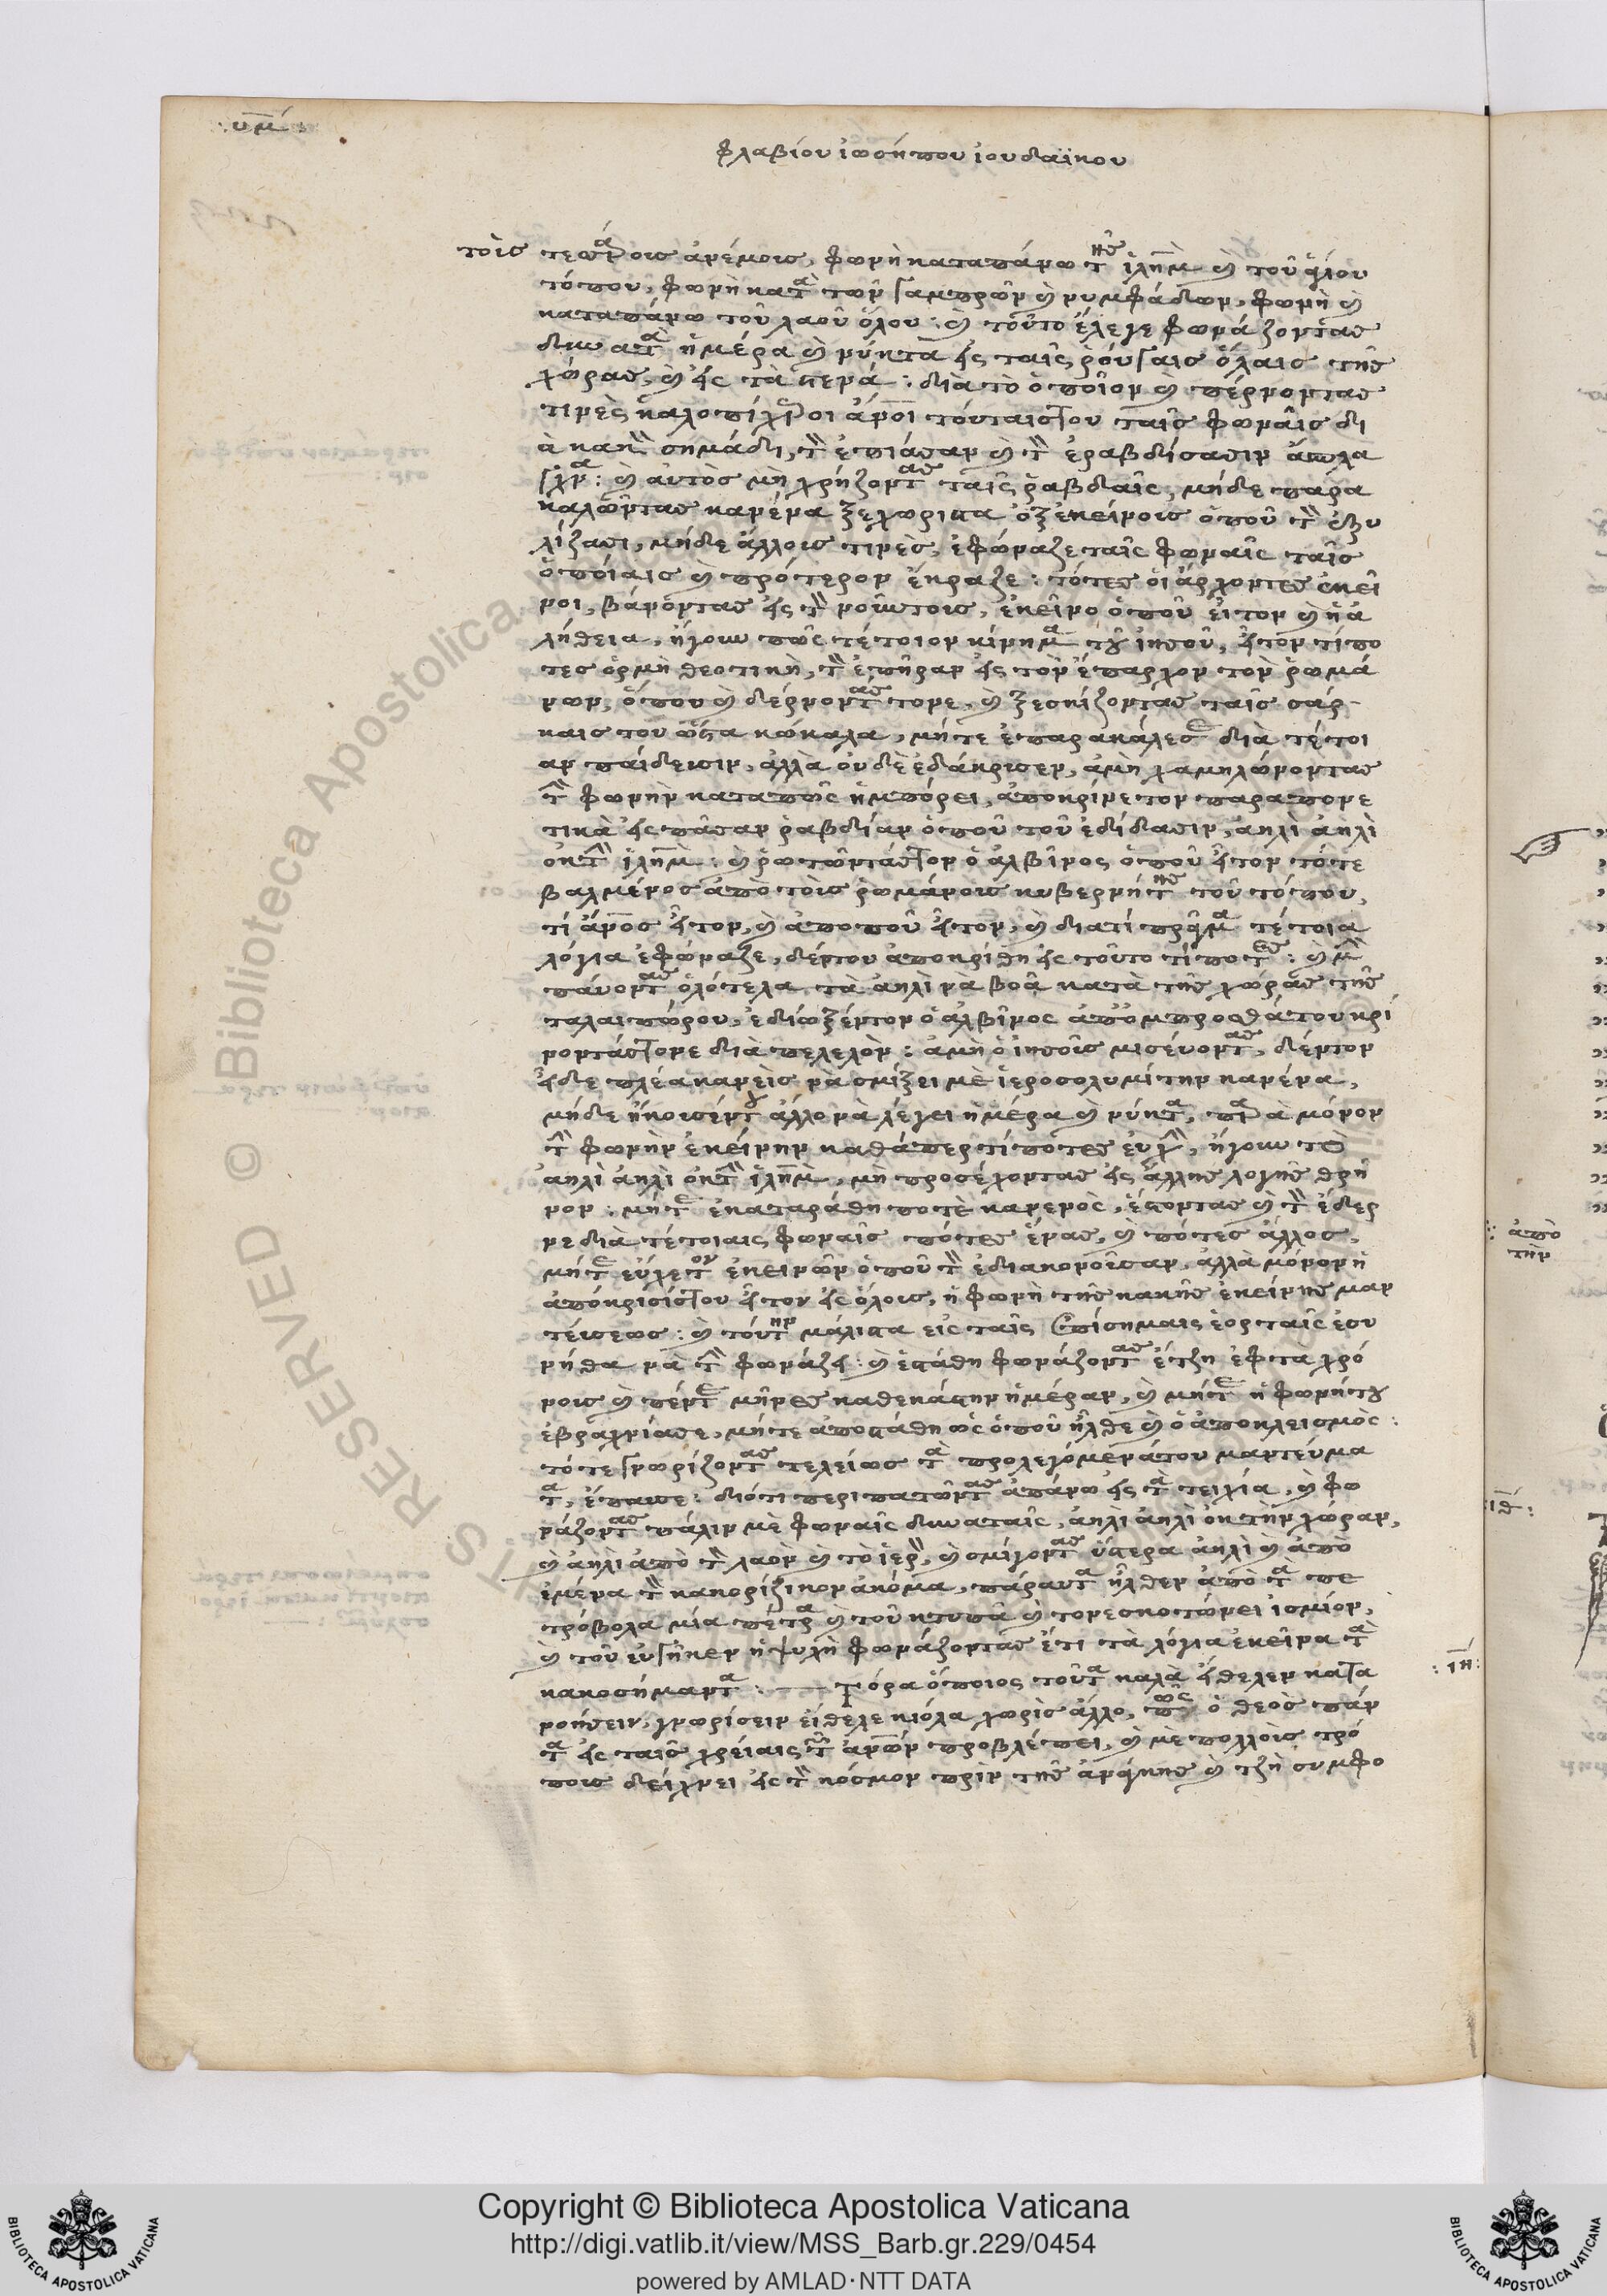 υμ
φλαβίου ἰωσήπου ἰουδαϊκου
τοὶς τεσσάροις ἀνέμοις, φωνὴ καταπάνω τῆς ἱλημ καὶ τοῦ ἁγίου
τόπου, φωνὴ κατὰ τῶν γαμπρῶν καὶ νυμφάδων, φωνὴ καὶ
καταπάνω τοῦ λαοῦ ὅλου: καὶ τοῦτο ἔλεγε φωνάζοντας
δυνατὰ ἡμέρα καὶ νύκτα εἰς ταῖς ῥούγαις ὅλαις τῆς
χώρας, καὶ εἰς τὰ στενά: διὰ τὸ ὁποῖον καὶ πέρνοντας
τινὲς καλοπίχεροι ἄνοι τόνταιστου ταῖς φωναῖς δι
ὰ κακὸν σημάδι, τὸν ἐπιάσαν καὶ τὸν ἐραβδίσασιν
καὶ αὐτὸς μὴ χρήζοντας ταῖς ῥαβδαῖς, μήδε παρα
καλῶντας κανένα ξεχωριστα ὀξεκείνοις ὁποῦ τὸν ἐξυ
λίζασι, μήδε ἄλλοις τινὲς, ἐφώναζε ταῖς φωναῖς ταῖς
ὁποίαις καὶ πρότερον ἔκραζε: τότες οἱ ἄρχοντες ἐκεῖ
νοι, βάνοντας εἰς τὸν νοῦντοις, ἐκεῖνο ὁποῦ εἶτον καὶ ἡ ἀ
λήθεια, ἤγουν πῶς τέτοιον κίνημα τοῦ ἰησοῦ, εἶτον τίπο
τες ὁρμὴ θεοτικὴ, τὸν ἐπῆραν εἰς τὸν ἔπαρχον τὸν ῥωμά
νων, ὅπου καὶ δέρνοντας τονε, καὶ ξεσκίζοντας ταῖς σάρ-
καις του ὥστα κώκαλα, μήτε ἐπαρακάλεσε διὰ τέτοι
αν παίδευσιν, ἀλλὰ οὐδὲ ἐδάκρισεν, ἀμὴ χαμηλώνοντας
τὴν φωνὴν καταπῶς ἠμπόρει, ἀποκρίνετον παραπονε
τικὰ εἰς πᾶσαν ῥαβδίαν ὁποῦ τοῦ ἐδίδασιν, ἀηλὶ ἀηλὶ
ὀκτὴν ἱλημ: καὶ ῥωτῶντάστον ὁ ἀλβῖνος ὁποῦ εἶτον τότε
βαλμένος ἀπὸ τοὶς ῥωμάνοις κυβερνήτης τοῦ τόπου,
τί ἄνος εἶτον, καὶ ἀποποῦ εἶτον, καὶ διατί πρᾶγμα τέτοια
λόγια ἐφώναζε, δέντου ἀποκρίθη εἰς τοῦτο τίποτες: καὶ μὴ
πάνοντας ὁλότελα τὰ ἀηλὶ νὰ βοᾶ κατὰ τῆς χώρας τῆς
ταλαιπώρου, ἐδιώξέντον ὁ ἀλβῖνος ἀπὀμπροσθάτου κρί
νοντάστονε διὰ πελελὸν: ἀμὴ ὁ ἰησοῦς μισένοντας, δέντον
εἶδε πλέα κανεὶς νὰ σμίξει μὲ ἱεροσολυμίτην κανένα,
μήδε ἠκουσέντου ἄλλο νὰ λέγει ἡμέρα καὶ νύκτα, παρὰ μόνον
τὴν φωνὴν ἐκείνην καθάπερ τίποτες εὐχὴν, ἤγουν τὸ
ἀηλὶ ἀηλὶ ὀκτὴν ἱλημ, μὴ προσέχοντας εἰς ἄλλης λογῆς θρῆ
νον: μήτε ἐκαταράθη ποτὲ κανενὸς, ἔστοντας καὶ τὸν ἔδερ
νε διὰ τέτοιαις φωναῖς πότες ἕνας, καὶ πότες ἄλλος,
μήτε εὔχετον ἐκεινῶν ὁποῦ τὸν ἐδιακονοῦσαν, ἀλλὰ μόνον ἡ
ἀπόκρισίστου εἶτον εἰς ὅλοις, ἡ φωνὴ τῆς κακῆς ἐκείνης μαν
τεύσεως: καὶ τούτην μάλιστα εἰς ταῖς ἐπίσημαις ἑορταῖς ἐσυ
νήθα νὰ τὴν φωνάζει: καὶ ἐστάθη φωνάζοντας ἔτζη ἑφτὰ χρό
νοις καὶ πέντε μῆνες καθεκάστην ἡμέραν, καὶ μήτε ἡ φωνήτου
ἐβραχνίασε, μήτε ἀποστάθη ὡς ὁποῦ ἦλθε καὶ ὁ ἀποκλεισμὸς:
τότε γνωρίζοντας τελείως τὰ προλεγόμενάτου μαντεύμα
τα, ἔπαυσε: διότι περιπατῶντας ἀπάνω εἰς τὰ τειχία, καὶ φω
νάζοντας πάλιν μὲ φωναῖς δυναταῖς, ἀηλὶ ἀηλὶ ὀκ τὴν χώραν,
καὶ ἀηλὶ ἀπὸ τὸν λαὸν καὶ τὸ ἱερὸν, καὶ σμίγοντας ὕστερα ἀηλὶ καὶ ἀπὸ
ἐμένα τὸν κακορίζικον ἀκόμα, πάραυτα ἦλθεν ἀπὸ τὰ πε
τρόβολα μία πέτρα καὶ τοῦ κτυπᾶ καὶ τονεσκοτώνει ἰσμιὸν,
καὶ τοῦ εὐγῆκεν ἡ ψυχὴ φωνάζοντας ἔτι τὰ λόγια ἐκεῖνα τὰ
κακοσήμαντα: Τόρα ὅποιος τοῦτα καλὰ εἴθελεν κατα
νοήσειν, γνωρίσειν εἴθελε κιόλα χωρὶς ἄλλο, πῶς ὁ θεὸς πάν
τα εἰς ταῖς χρείαις τῶν ἀνῶν προβλέπει, καὶ μὲ πολλοὶς τρό
ποις δείχνει εἰς τὸν κόσμον πρὶν τῆς ἀνάγκης καὶ τζὴ συμφο
ἀπὸ
τὴν
:ιζ:
:ιη:
Copyright © Biblioteca Apostolica Vaticana
http://digi.vatlib.it/view/MSS_Barb.gr.229/0454
powered by AMLAD·NTT DATA